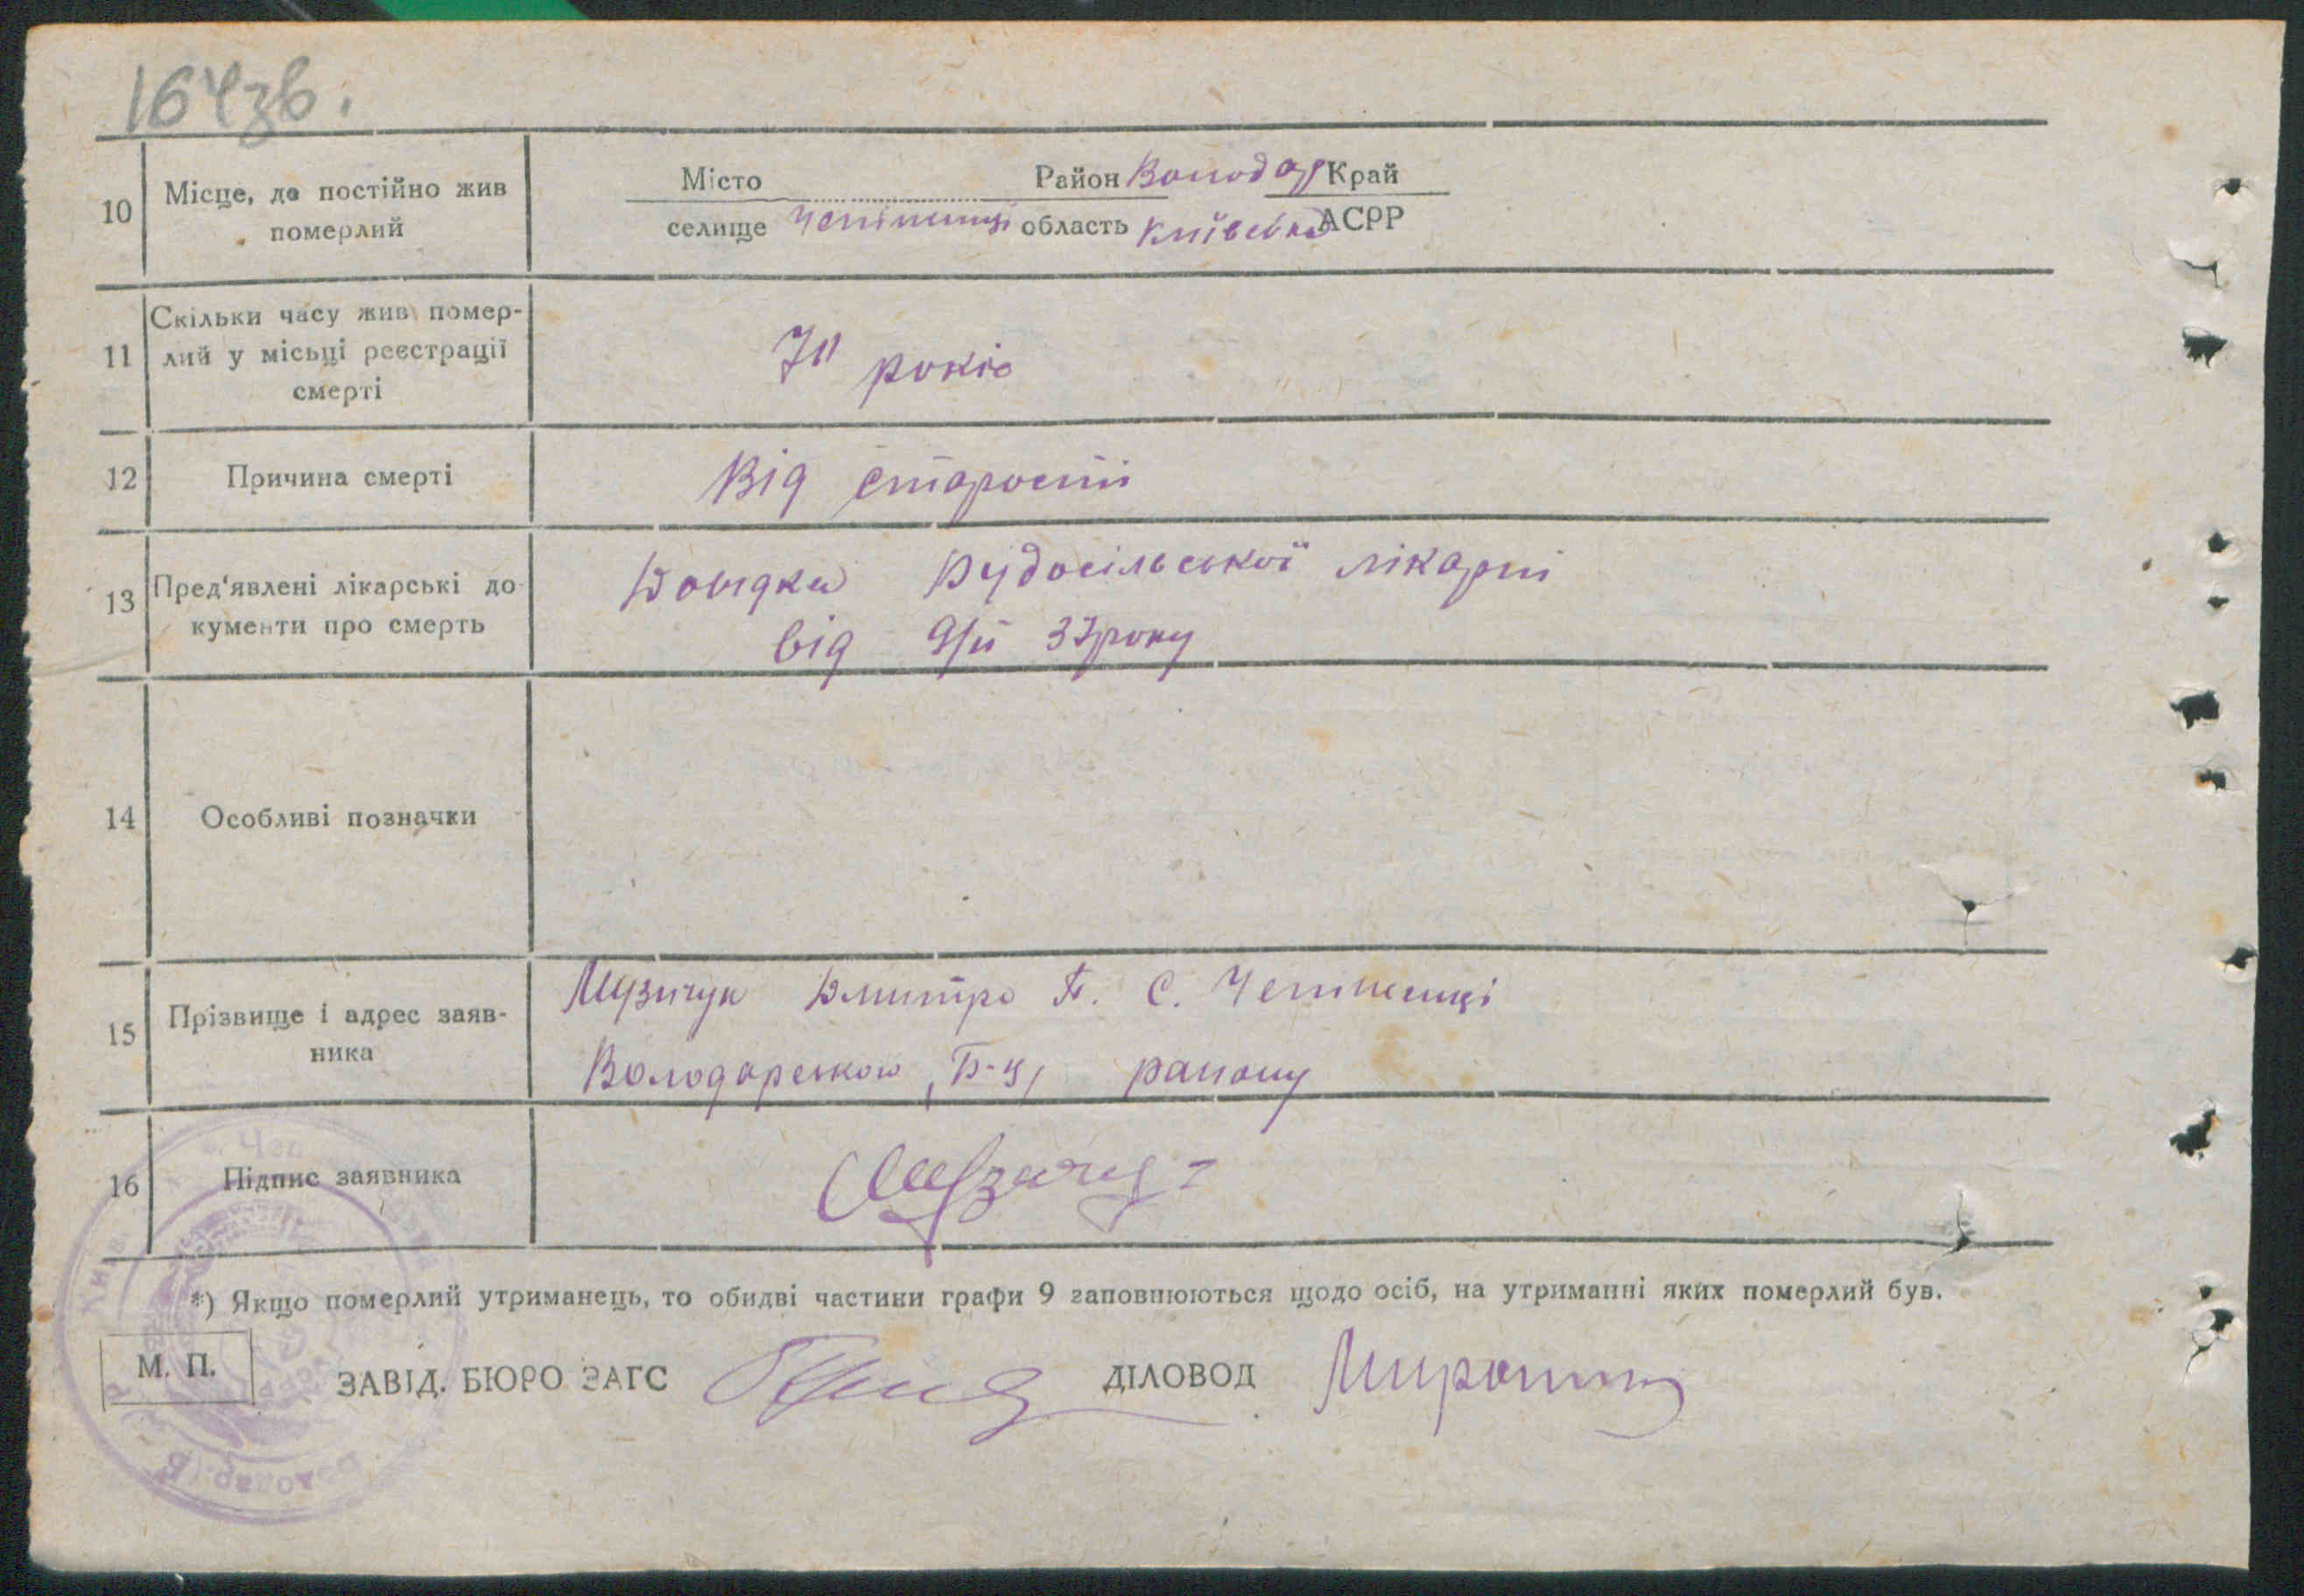 164зв.
10 Місце, де постійно жив померлий
Місто Район Володар Край
селище Чепіжинці область Київська АСРР
11 Скільки часу жив померлий у місьці реєстрації смерті
70 років
12 Причина смерті
Від старості
13 Пред'явлені лікарські документи про смерть
Довідка Рудосільської лікарні
від 9/ІІ 37 року
14 Особливі позначки
15 Прізвище і адрес заявника
Музичук Дмитро П. с. Чепіжинці
Володарського, Б-Ц, району
16 Підпис заявника
Музичу
*) Якщо померлий утриманець, то обидві частини графи 9 заповнюються щодо осіб, на утриманні яких померлий був.
М. П. ЗАВІД. БЮРО ЗАГС ДІЛОВОД